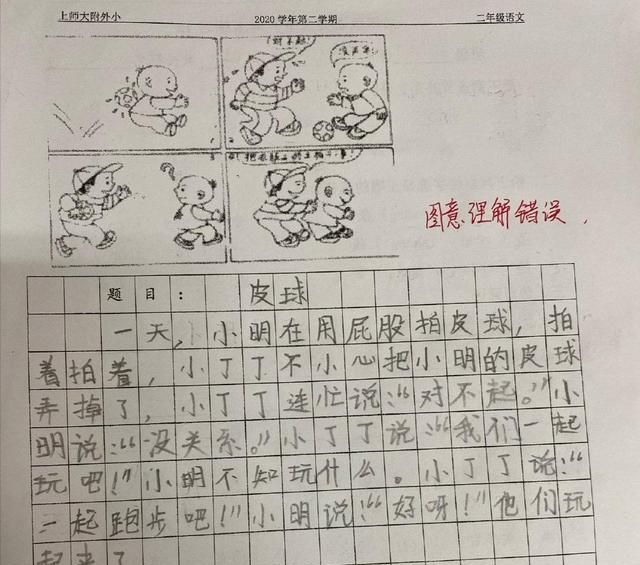 上师大附外小 2020 学年第二学期 二年级语文
对不起!
没关系!
图意理解错误.
题 目: 皮球
一天,小明在用屁股拍皮球,拍
着拍着,小丁丁不小心把小明的皮球
弄掉了,小丁丁连忙说:“对不起。”小
明说:“没关系。”小丁丁说:“我们一起
玩吧!”小明不知玩什么。小丁丁说:“
一起跑步吧!”小明说:“好呀!”他们玩
起来了